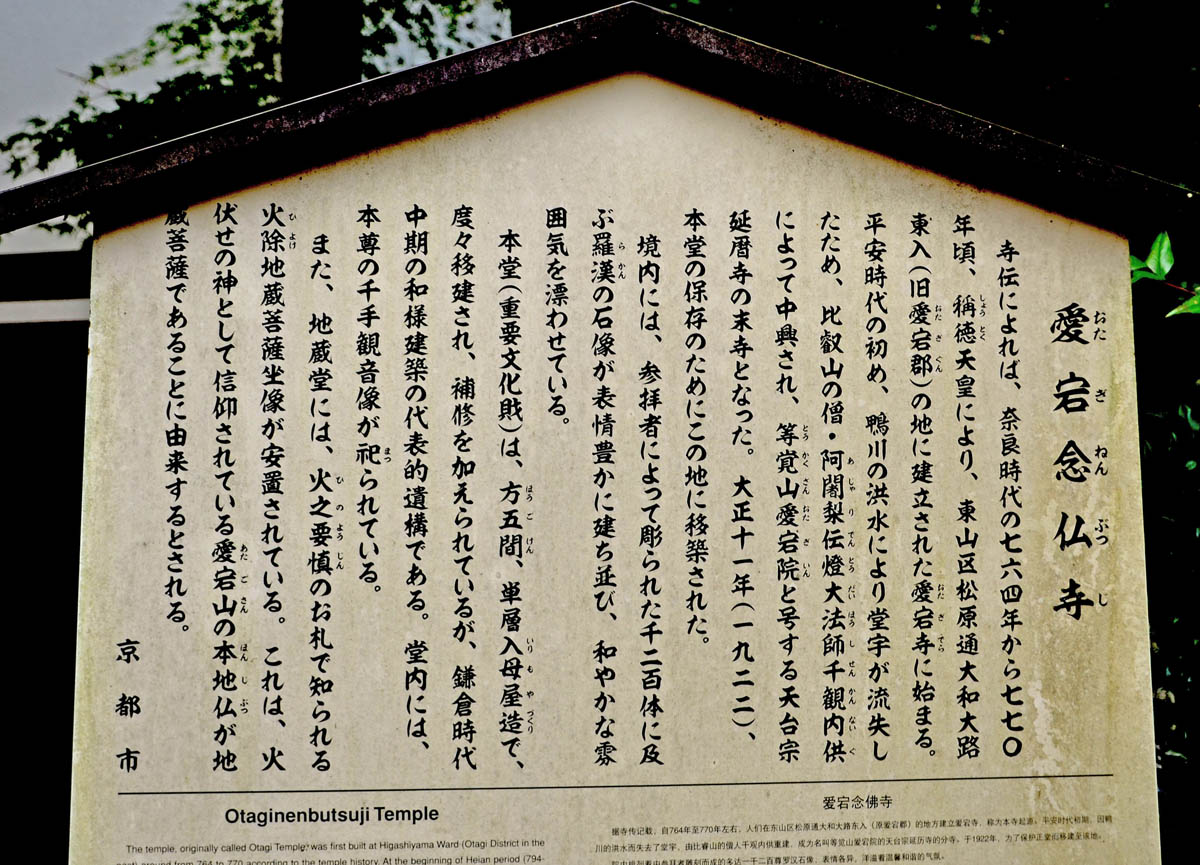 愛宕念仏寺
おたぎねんぶつじ
寺伝によれば、奈良時代の七六四年から七七〇
年頃、稱徳天皇により、東山区松原通大和大路
東入(旧愛宕郡)の地に建立された愛宕寺に始まる。
平安時代の初め、鴨川の洪水により堂宇が流失し
たため、比叡山の僧・阿闍梨伝燈大法師千観内供
によって中興され、等覚山愛宕院と号する天台宗
延暦寺の末寺となった。大正十一年(一九二二)、
本堂の保存のためにこの地に移築された。
境内には、参拝者によって彫られた千二百体に及
ぶ羅漢の石像が表情豊かに建ち並び、和やかな雰
囲気を漂わせている。
本堂(重要文化財)は、方五間、単層入母屋造で、
度々移建され、補修を加えられているが、鎌倉時代
中期の和様建築の代表的遺構である。堂内には、
本尊の千手観音像が祀られている。
また、地蔵堂には、火之要慎のお札で知られる
火除地蔵菩薩坐像が安置されている。これは、火
伏せの神として信仰されている愛宕山の本地仏が地
蔵菩薩であることに由来するとされる。
京都市
Otaginenbutsuji Temple
The temple, originally called Otagi Temple, was first built at Higashiyama Ward (Otagi District in the
past) around from 764 to 770 according to the temple history. At the beginning of Heian period (794-
爱宕念佛寺
据寺传记载，自764年至770年左右，人们在东山区松原通大和大路东入（原爱宕郡）的地方建立爱宕寺，称为本寺起源。平安时代初期，因鸭
川的洪水而失去了堂宇，由比睿山的僧人千观内供重建，成为名叫等觉山爱宕院的天台宗延历寺的分寺。于1922年，为了保护正堂而移建至该地。